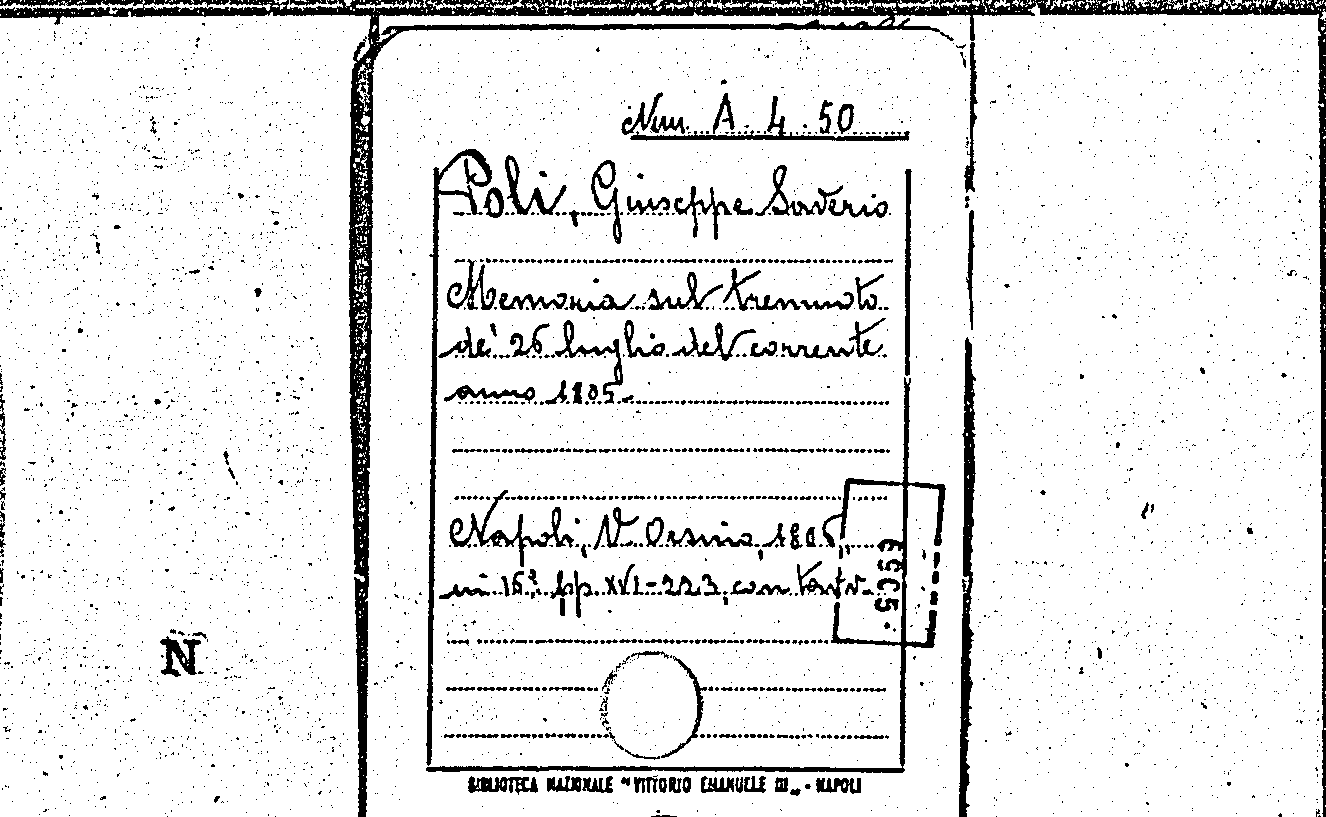 Num A. 4. 50
Poli, Giuseppe Saverio
Memoria sul tremuoto
de' 26 luglio del corrente
anno 1805.
Napoli, V. Orsino, 1806,
in 16º. pp. XVI-223, con tav.
N
BIBLIOTECA NAZIONALE "VITTORIO EMANUELE III„ - NAPOLI